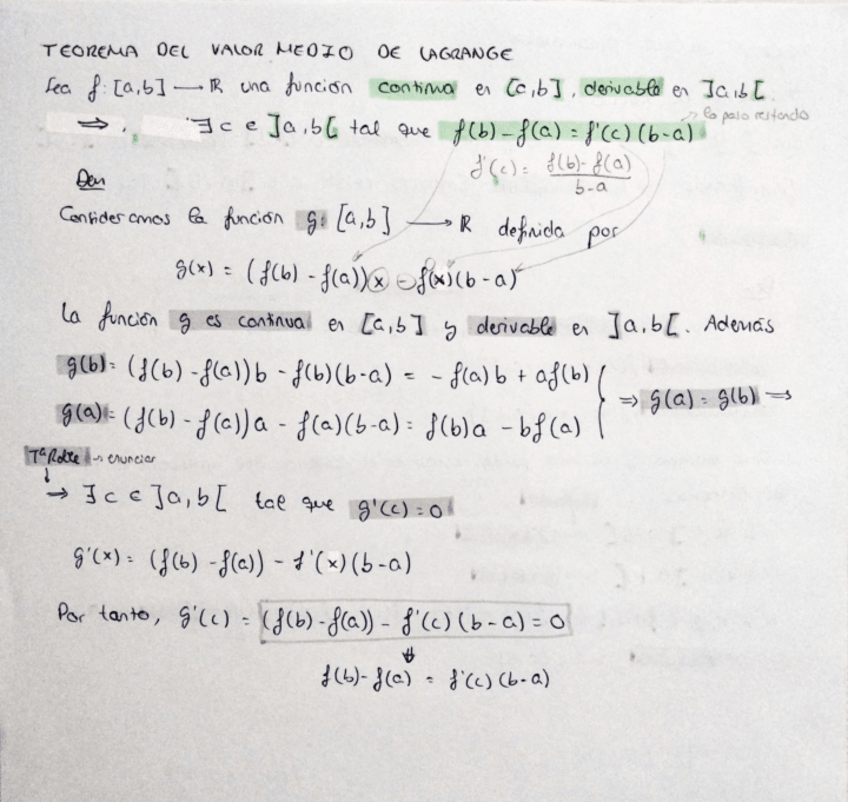 TEOREMA DEL VALOR MEDIO DE LAGRANGE
Sea f: [a,b] → R una función continua en [a,b], derivable en ]a,b[.
⇒ ∃ c ∈ ]a,b[ tal que f(b) - f(a) = f'(c)(b-a)
→ lo paso restando
f'(c) = f(b) - f(a) / b-a
Dem
Consideramos la función g: [a,b] → R definida por
g(x) = (f(b) - f(a))x - f(x)(b-a)
La función g es continua en [a,b] y derivable en ]a,b[. Además
g(b) = (f(b) - f(a))b - f(b)(b-a) = - f(a)b + af(b)
g(a) = (f(b) - f(a))a - f(a)(b-a) = f(b)a - bf(a)
⇒ g(a) = g(b) ⇒
Tª Rolle → enunciar
↓
⇒ ∃ c ∈ ]a,b[ tal que g'(c) = 0
g'(x) = (f(b) - f(a)) - f'(x)(b-a)
Por tanto, g'(c) = (f(b) - f(a)) - f'(c)(b-a) = 0
⇓
f(b) - f(a) = f'(c)(b-a)